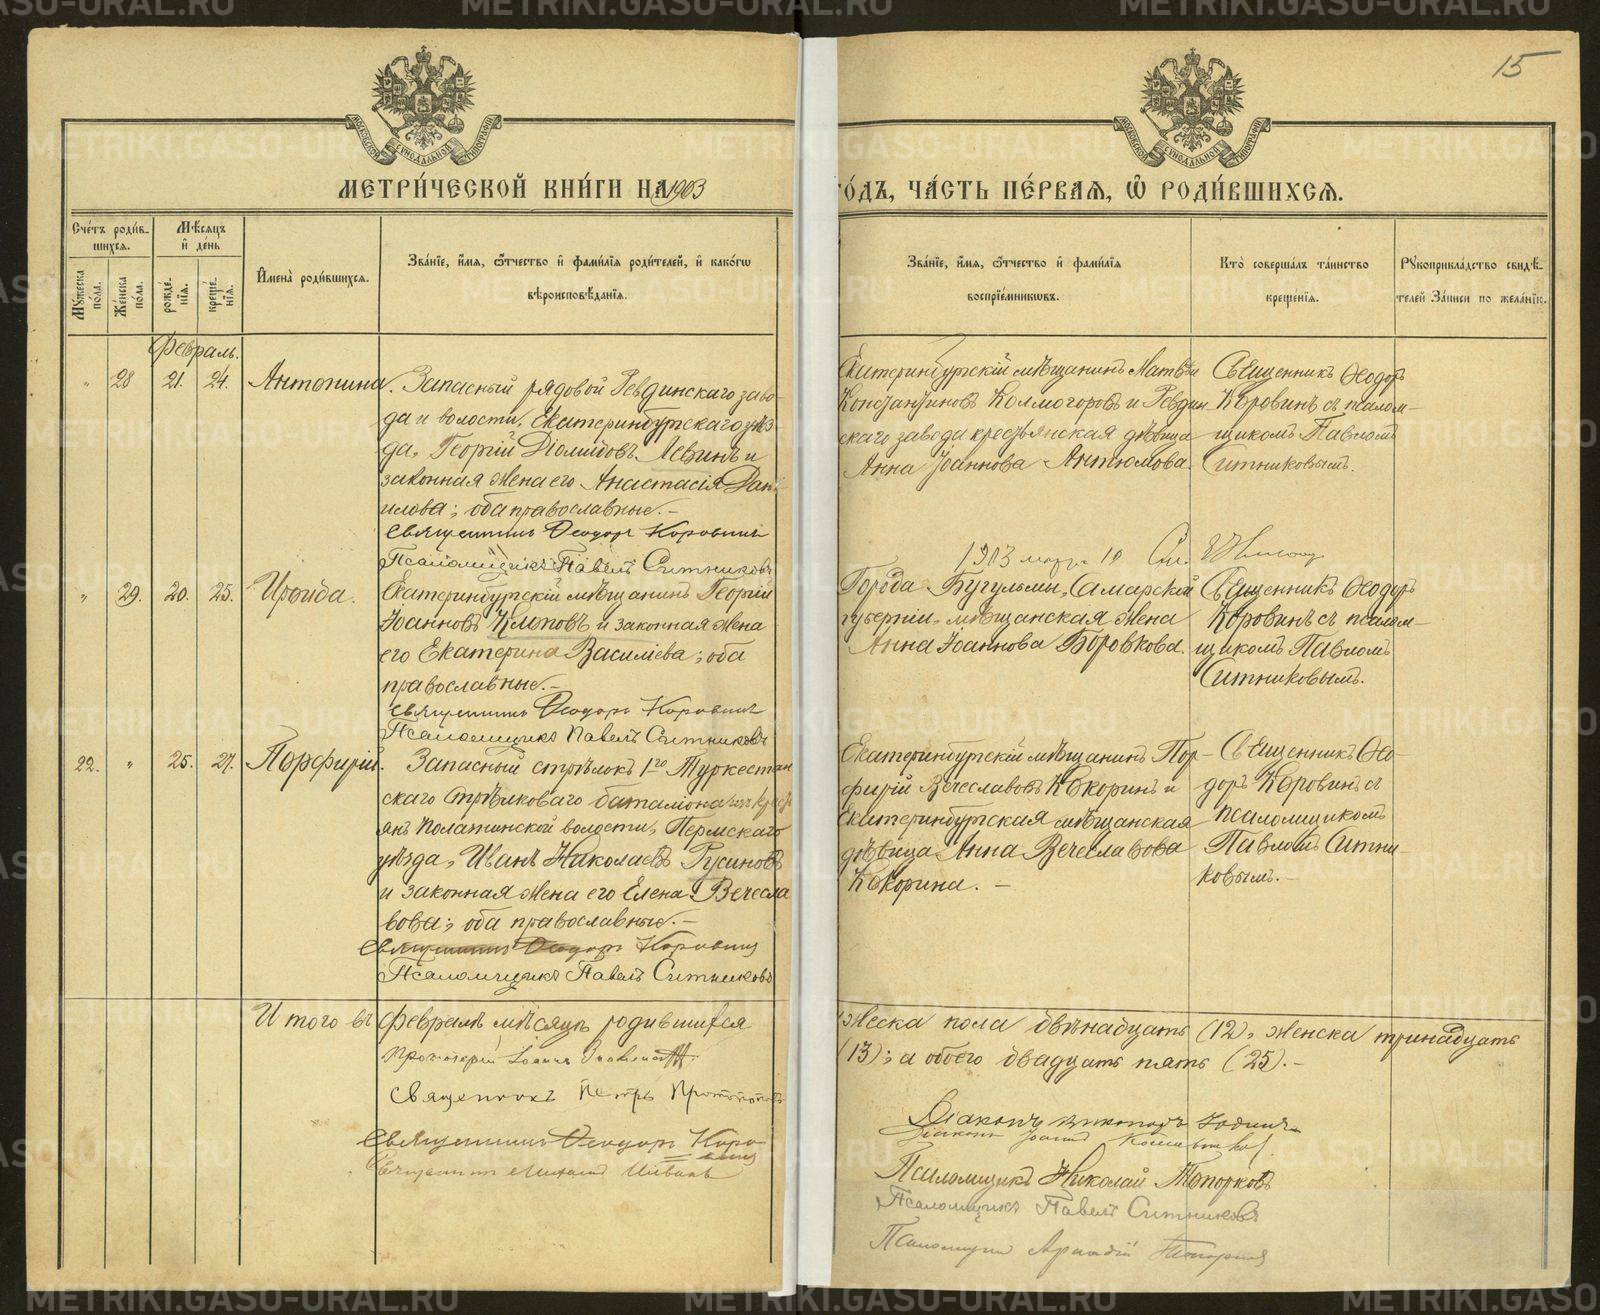 15
МОСКОВСКОЙ СѴНОДАЛЬНОЙ ТИПОГРАФІИ
МОСКОВСКОЙ СѴНОДАЛЬНОЙ ТИПОГРАФІИ
МЕТРИ́ЧЕСКОЙ КНИ́ГИ НА 1903
ГО́ДЪ, ЧА́СТЬ ПЕ́РВАЯ, Ѡ РОДИ́ВШИХСЯ.
Сче́тъ роди́в-
шихся.
Мѣ́сяцъ
и де́нь
Мꙋжеска
пола.
Же́нска
по́ла.
рожде́-
нїя.
креще́-
нїя.
Имена̀ роди́вшихся.
Зва́нїе, и́мя, ѻ́тчество и фами́лїя роди́телей, и како́гѡ
вѣроисповѣ́данїя.
Зва́нїе, и́мя, ѻ́тчество и фами́лїя
воспрїе́мникѡвъ.
Кто̀ соверша́лъ та́инство
креще́нїя.
Рꙋкоприкла́дство свидѣ́-
телей За́писи по жела́нїю.
Февраль.
" 28 21. 24. Антонина.
Запасный рядовой Ревдинскаго заво-
да и волости, Екатеринбургскаго уѣз-
да, Георгій Діомидовъ Левинъ и
законная жена его Анастасія Дані-
илова; оба православные.–
Священникъ Ѳеодоръ Коровинъ
Псаломщикъ Павелъ Ситниковъ
Екатеринбургскій мѣщанинъ Матвѣй
Константиновъ Колмогоровъ и Ревдин-
скаго завода крестьянская дѣвица
Анна Іоаннова Антюмова.
Священникъ Ѳеодоръ
Коровинъ съ псалом-
щикомъ Павломъ
Ситниковымъ.
1903 март 10
" 29. 20. 25. Ираида.
Екатеринбургскій мѣщанинъ Георгій
Іоанновъ Клоповъ и законная жена
его Екатерина Василіева; оба
православные.–
Священникъ Ѳеодоръ Коровинъ
Псаломщикъ Павелъ Ситниковъ
Города Бугульмы, Самарской
губерніи, мѣщанская жена
Анна Іоаннова Боровкова.
Священникъ Ѳеодоръ
Коровинъ съ псалом-
щикомъ Павломъ
Ситниковымъ.
22. " 25. 27. Порфирій.
Запасный стрѣлокъ 1го Туркестан
скаго стрѣлковаго баталіона изъ крест
янъ Полазнинской волости, Пермскаго
уѣзда, Иванъ Николаевъ Русиновъ
и законная жена его Елена Вечесла
вова; оба православные.–
Священникъ Ѳеодоръ Коровинъ
Псаломщикъ Павелъ Ситниковъ
Екатеринбургскій мѣщанинъ Пор-
фирій Вечеславовъ Кокоринъ и
Екатеринбургская мѣщанская
дѣвица Анна Вечеславова
Кокорина.–
Священникъ Ѳео-
доръ Коровинъ съ
псаломщикомъ
Павломъ Ситни-
ковымъ.–
Итого въ февралѣ мѣсяцѣ родившихся
мужеска пола двѣнадцать (12), женска тринадцать
(13); а обоего двадцать пять (25).–
Протоіерей Іоаннъ
Священникъ Петръ Протопоповъ
Священникъ Ѳеодоръ Коро-
винъ
Священникъ
Діаконъ
Діаконъ Іоаннъ
Псаломщикъ Николай Топорковъ
Псаломщикъ Павелъ Ситниковъ
Псаломщикъ Аркадій
METRIKI.GASO-URAL.RU